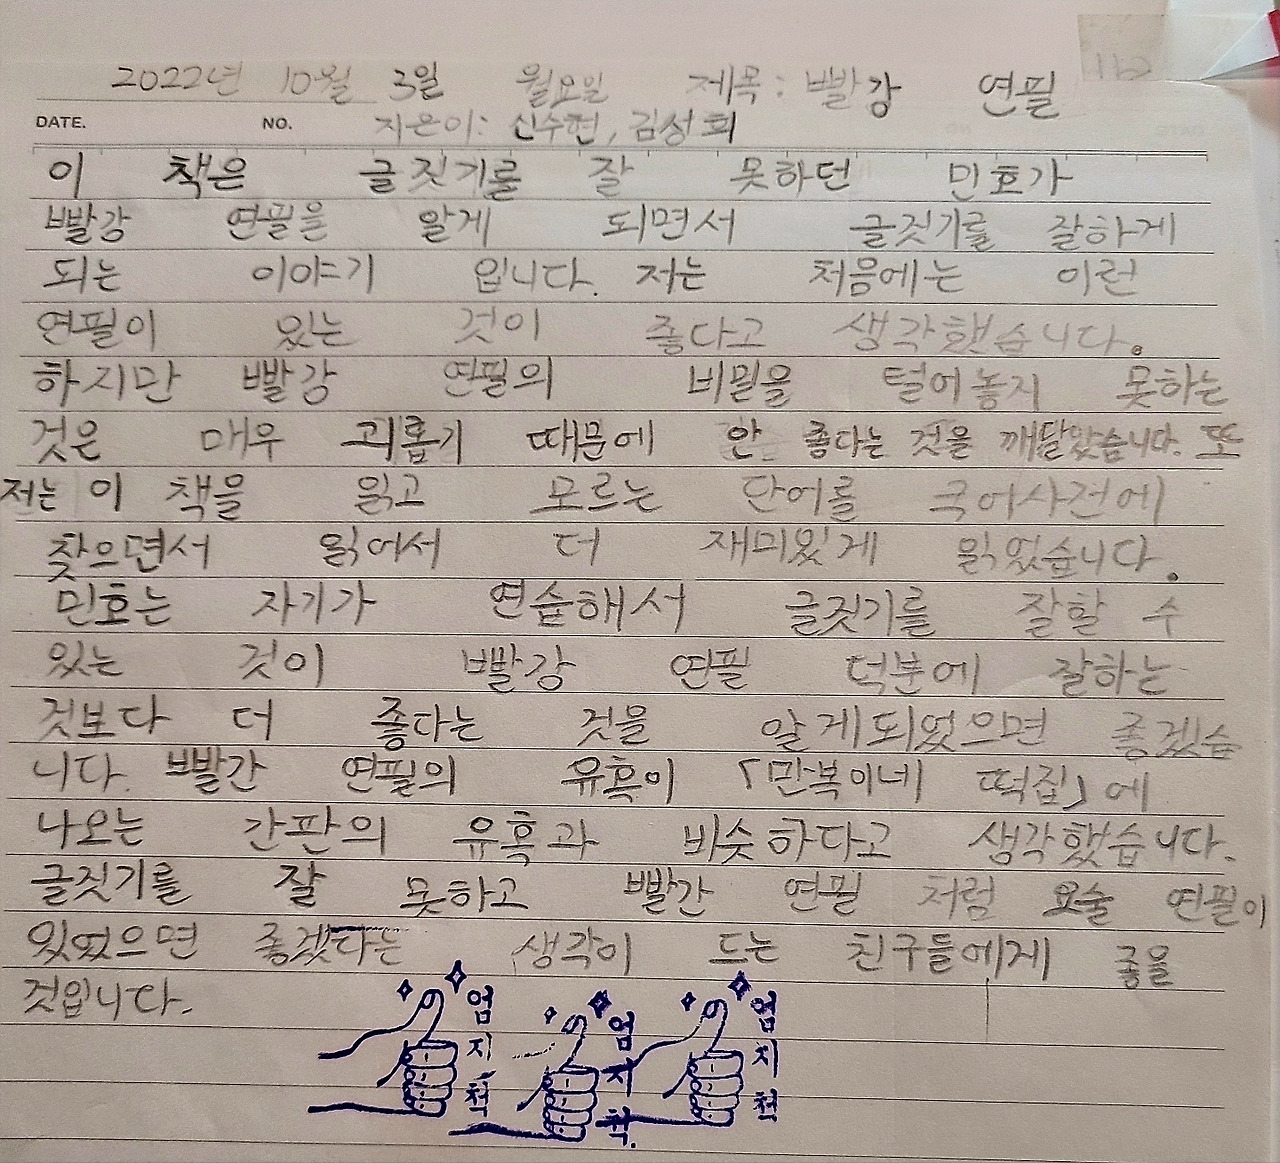 2022년 10월 3일 월요일 제목: 빨강 연필
DATE. NO. 지은이: 신수현, 김성희
이 책은 글짓기를 잘 못하던 민호가
빨강 연필을 알게 되면서 글짓기를 잘하게
되는 이야기 입니다. 저는 처음에는 이런
연필이 있는 것이 좋다고 생각했습니다.
하지만 빨강 연필의 비밀을 털어놓지 못하는
것은 매우 괴롭기 때문에 안 좋다는 것을 깨달았습니다. 또
저는 이 책을 읽고 모르는 단어를 국어사전에
찾으면서 읽어서 더 재미있게 읽었습니다.
민호는 자기가 연습해서 글짓기를 잘할 수
있는 것이 빨강 연필 덕분에 잘하는
것보다 더 좋다는 것을 알게되었으면 좋겠습
니다. 빨간 연필의 유혹이 「만복이네 떡집」에
나오는 간판의 유혹과 비슷하다고 생각했습니다.
글짓기를 잘 못하고 빨간 연필 처럼 요술 연필이
있었으면 좋겠다는 생각이 드는 친구들에게 좋을
것입니다.
엄지척 엄지척 엄지척